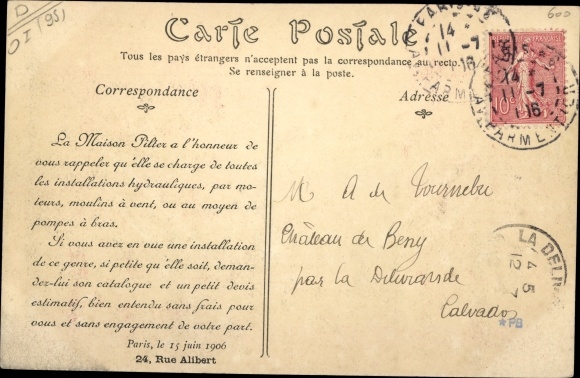 D
OI (95)
600
Carte Postale
Tous les pays étrangers n'acceptent pas la correspondance au recto.
Se renseigner à la poste.
Correspondance
Adresse
14
11-7
16
10c
14
11-7
16
AV. PARMENTIER
La Maison Pilter a l'honneur de
vous rappeler qu'elle se charge de toutes
les installations hydrauliques, par mo-
teurs, moulins à vent, ou au moyen de
pompes à bras.
Si vous avez en vue une installation
de ce genre, si petite qu'elle soit, deman-
dez-lui son catalogue et un petit devis
estimatif, bien entendu sans frais pour
vous et sans engagement de votre part.
Paris, le 15 juin 1906
24, Rue Alibert
M A de Tournebu
Château de Beny
par la Délivrande
Calvados
LA DELIV
4 5
12 7
★PB